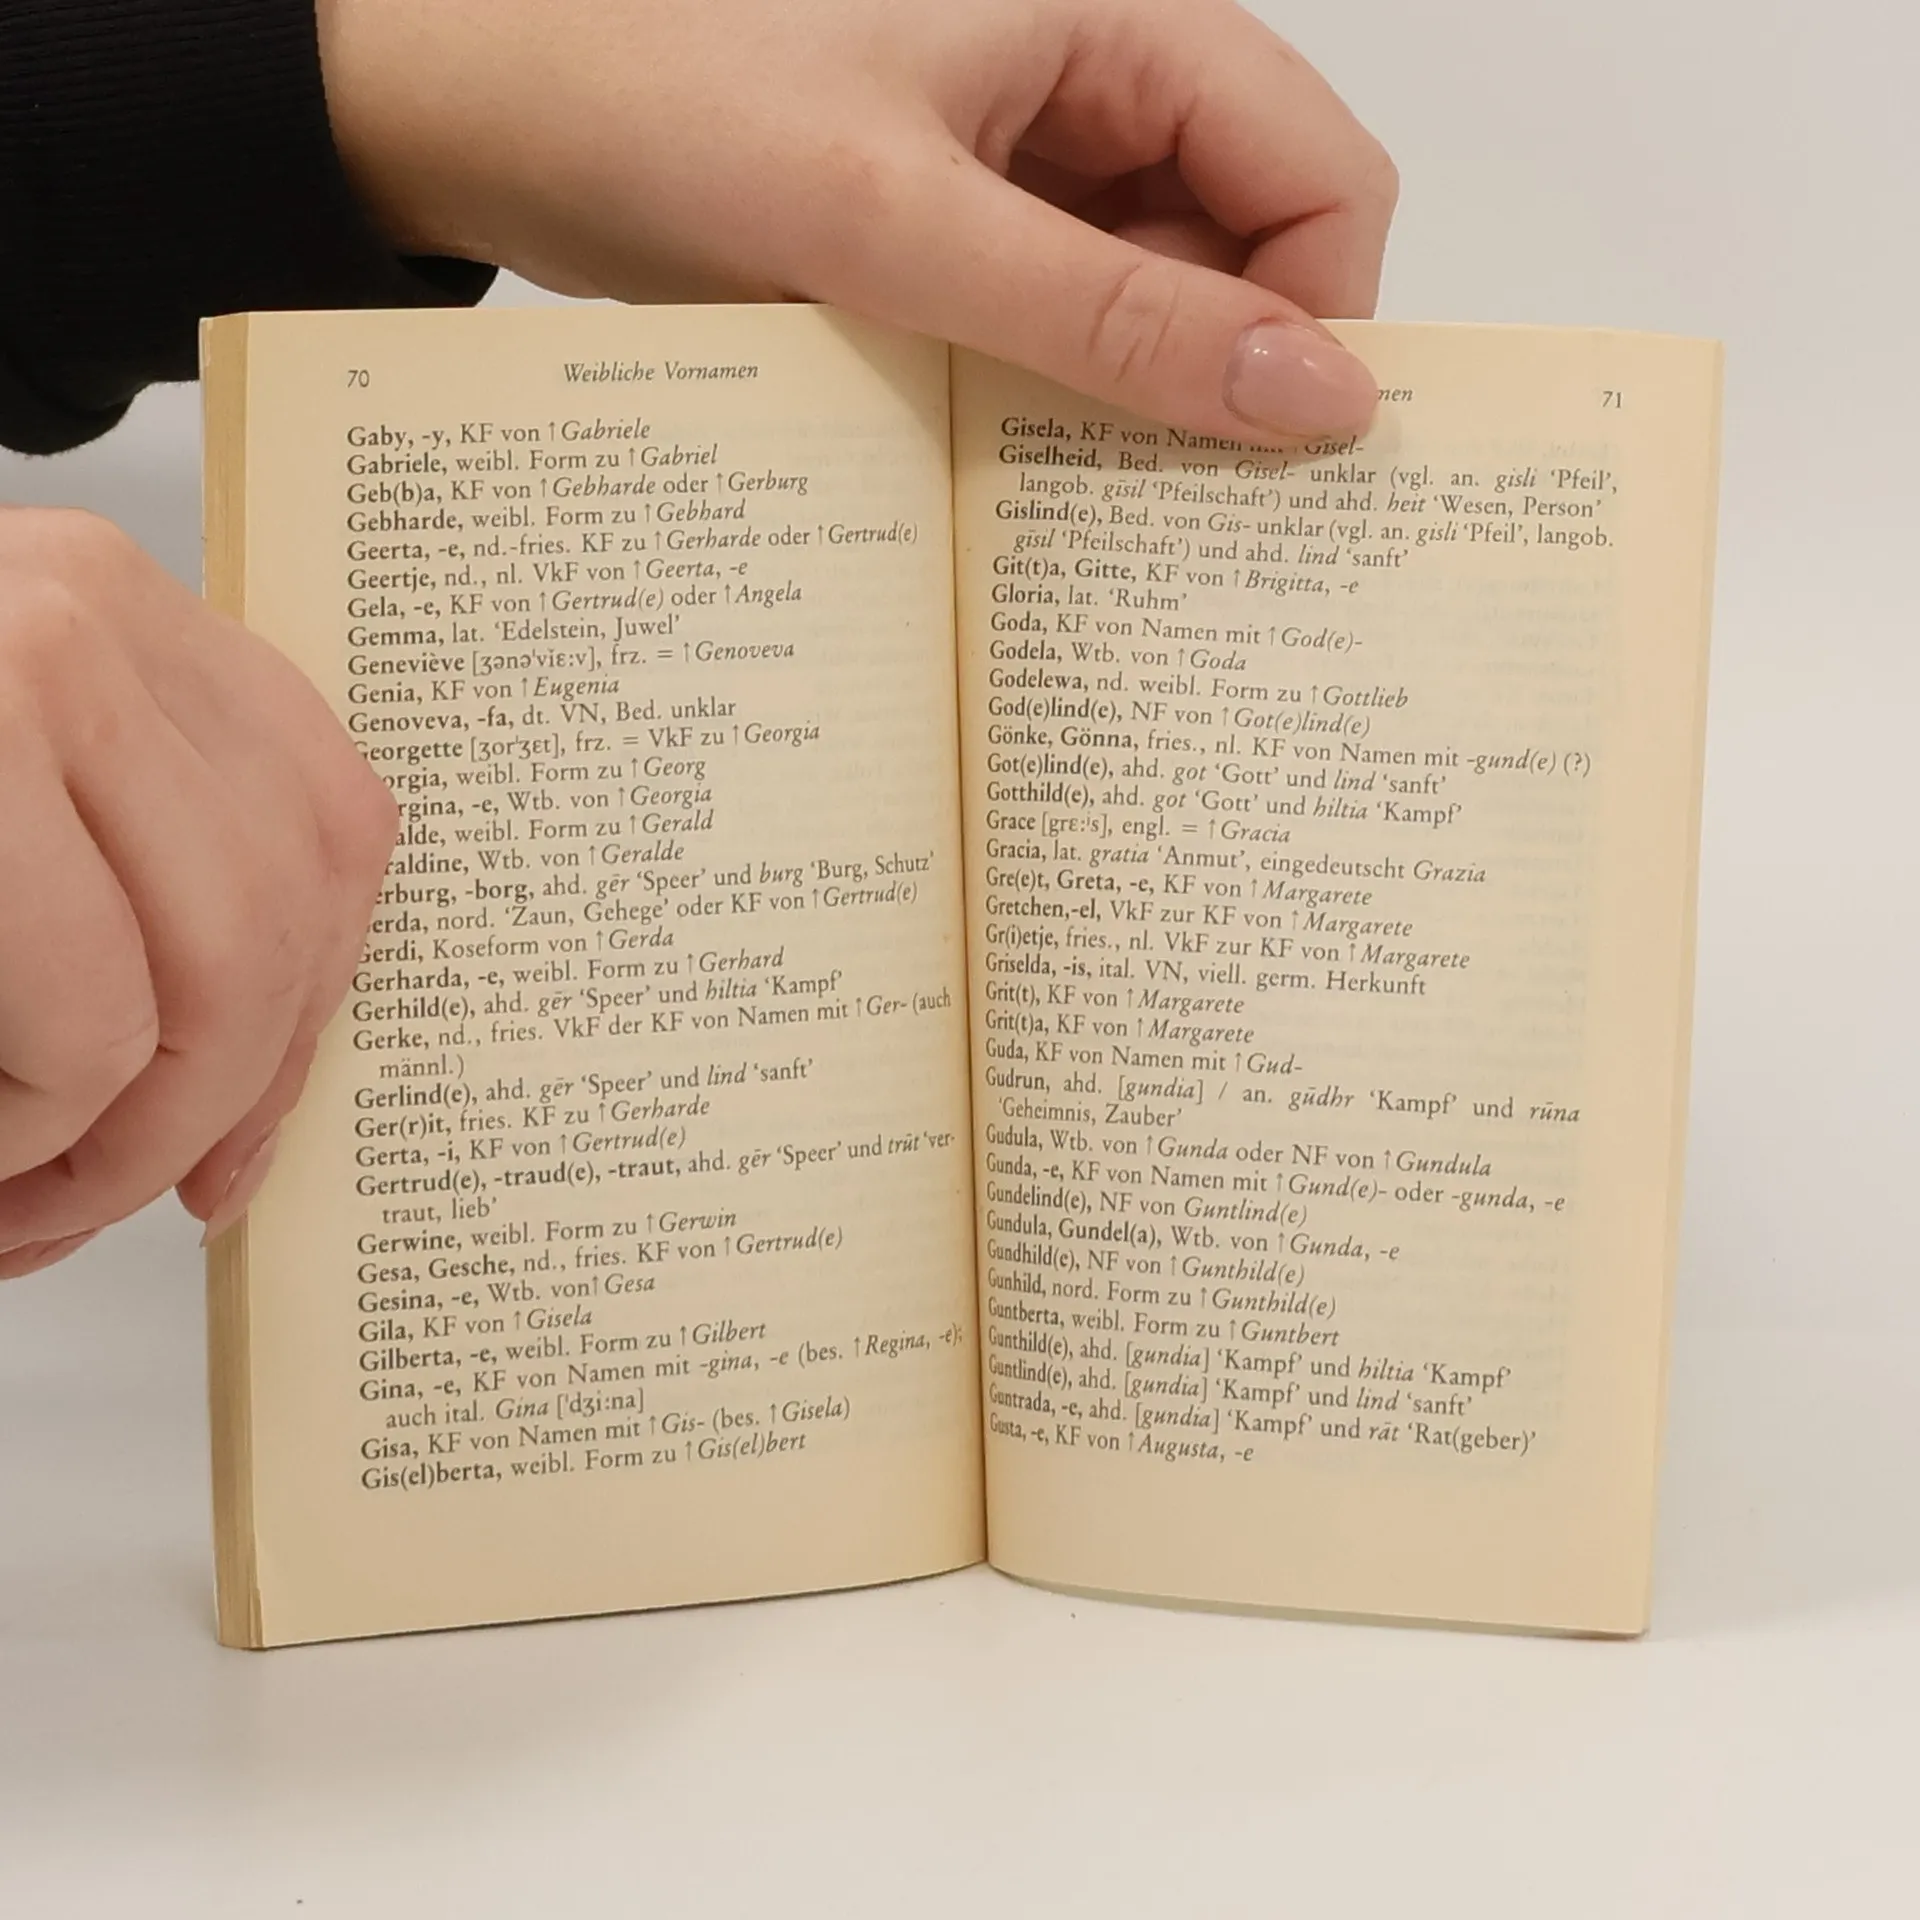 70 Weibliche Vornamen
Gaby, -y, KF von ↑Gabriele
Gabriele, weibl. Form zu ↑Gabriel
Geb(b)a, KF von ↑Gebharde oder ↑Gerburg
Gebharde, weibl. Form zu ↑Gebhard
Geerta, -e, nd.-fries. KF zu ↑Gerharde oder ↑Gertrud(e)
Geertje, nd., nl. VkF von ↑Geerta, -e
Gela, -e, KF von ↑Gertrud(e) oder ↑Angela
Gemma, lat. ‘Edelstein, Juwel’
Geneviève [ʒənəˈviɛ:v], frz. = ↑Genoveva
Genia, KF von ↑Eugenia
Genoveva, -fa, dt. VN, Bed. unklar
eorgette [ʒorˈʒɛt], frz. = VkF zu ↑Georgia
orgia, weibl. Form zu ↑Georg
rgina, -e, Wtb. von ↑Georgia
alde, weibl. Form zu ↑Gerald
raldine, Wtb. von ↑Geralde
erburg, -borg, ahd. gēr ‘Speer’ und burg ‘Burg, Schutz’
erda, nord. ‘Zaun, Gehege’ oder KF von ↑Gertrud(e)
Gerdi, Koseform von ↑Gerda
Gerharda, -e, weibl. Form zu ↑Gerhard
Gerhild(e), ahd. gēr ‘Speer’ und hiltia ‘Kampf’
Gerke, nd., fries. VkF der KF von Namen mit ↑Ger- (auch
männl.)
Gerlind(e), ahd. gēr ‘Speer’ und lind ‘sanft’
Ger(r)it, fries. KF zu ↑Gerharde
Gerta, -i, KF von ↑Gertrud(e)
Gertrud(e), -traud(e), -traut, ahd. gēr ‘Speer’ und trūt ‘ver-
traut, lieb’
Gerwine, weibl. Form zu ↑Gerwin
Gesa, Gesche, nd., fries. KF von ↑Gertrud(e)
Gesina, -e, Wtb. von↑Gesa
Gila, KF von ↑Gisela
Gilberta, -e, weibl. Form zu ↑Gilbert
Gina, -e, KF von Namen mit -gina, -e (bes. ↑Regina, -e);
auch ital. Gina [ˈdʒi:na]
Gisa, KF von Namen mit ↑Gis- (bes. ↑Gisela)
Gis(el)berta, weibl. Form zu ↑Gis(el)bert
men 71
Gisela, KF von Namen ↑Gisel-
Giselheid, Bed. von Gisel- unklar (vgl. an. gisli ‘Pfeil’,
langob. gīsil ‘Pfeilschaft’) und ahd. heit ‘Wesen, Person’
Gislind(e), Bed. von Gis- unklar (vgl. an. gisli ‘Pfeil’, langob.
gīsil ‘Pfeilschaft’) und ahd. lind ‘sanft’
Git(t)a, Gitte, KF von ↑Brigitta, -e
Gloria, lat. ‘Ruhm’
Goda, KF von Namen mit ↑God(e)-
Godela, Wtb. von ↑Goda
Godelewa, nd. weibl. Form zu ↑Gottlieb
God(e)lind(e), NF von ↑Got(e)lind(e)
Gönke, Gönna, fries., nl. KF von Namen mit -gund(e) (?)
Got(e)lind(e), ahd. got ‘Gott’ und lind ‘sanft’
Gotthild(e), ahd. got ‘Gott’ und hiltia ‘Kampf’
Grace [grɛ:ⁱs], engl. = ↑Gracia
Gracia, lat. gratia ‘Anmut’, eingedeutscht Grazia
Gre(e)t, Greta, -e, KF von ↑Margarete
Gretchen,-el, VkF zur KF von ↑Margarete
Gr(i)etje, fries., nl. VkF zur KF von ↑Margarete
Griselda, -is, ital. VN, viell. germ. Herkunft
Grit(t), KF von ↑Margarete
Grit(t)a, KF von ↑Margarete
Guda, KF von Namen mit ↑Gud-
Gudrun, ahd. [gundia] / an. gūdhr ‘Kampf’ und rūna
‘Geheimnis, Zauber’
Gudula, Wtb. von ↑Gunda oder NF von ↑Gundula
Gunda, -e, KF von Namen mit ↑Gund(e)- oder -gunda, -e
Gundelind(e), NF von Guntlind(e)
Gundula, Gundel(a), Wtb. von ↑Gunda, -e
Gundhild(e), NF von ↑Gunthild(e)
Gunhild, nord. Form zu ↑Gunthild(e)
Guntberta, weibl. Form zu ↑Guntbert
Gunthild(e), ahd. [gundia] ‘Kampf’ und hiltia ‘Kampf’
Guntlind(e), ahd. [gundia] ‘Kampf’ und lind ‘sanft’
Guntrada, -e, ahd. [gundia] ‘Kampf’ und rāt ‘Rat(geber)’
Gusta, -e, KF von ↑Augusta, -e